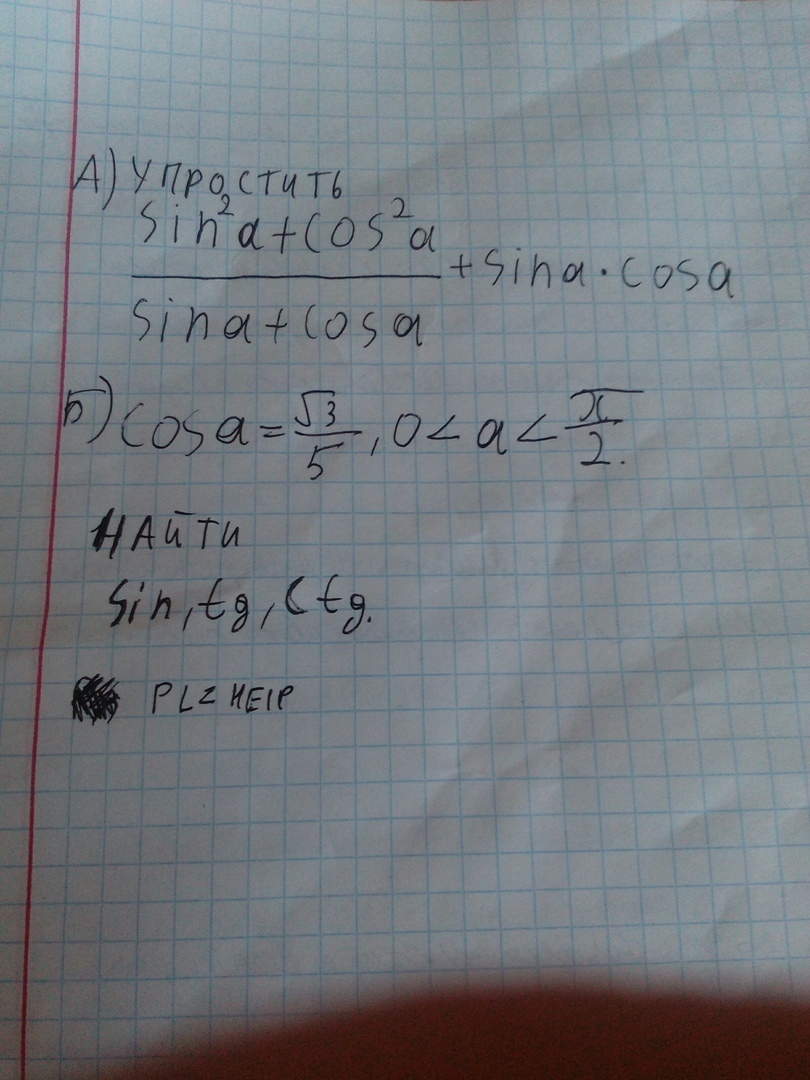 А) Упростить
sin²a+cos²a
/ sina+cosa + sina·cosa
Б) cosa=√3/5, 0<a<π/2.
НАЙТИ
sin, tg, ctg.
PLZ HElP